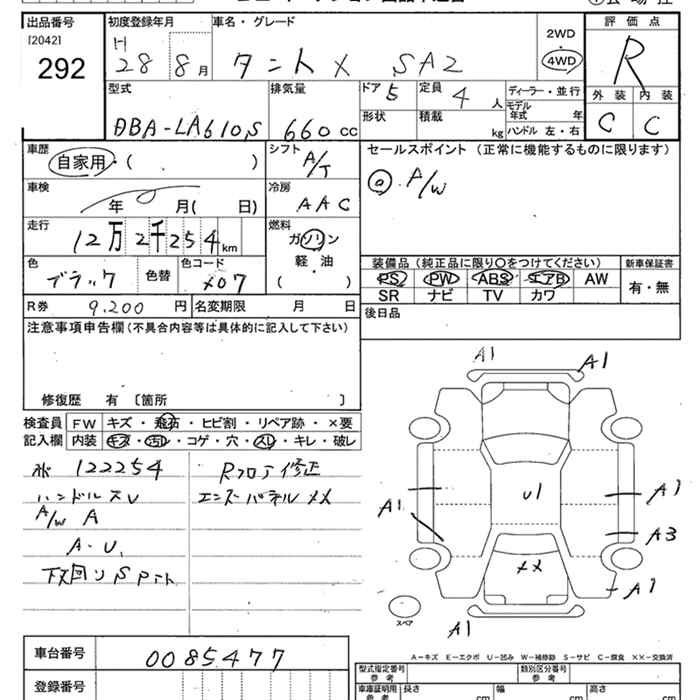 出品番号
[2042]
292
初度登録年月
H 28 8月
車名・グレード
タント X SA2
2WD
・
4WD
評価点
R
外装 内装
C C
型式
DBA-LA610S
排気量
660 cc
ドア 5
定員 4 人
形状
積載 kg
ディーラー・並行
モデル年式 年
ハンドル 左・右
車歴
自家用・( )
シフト
A/T
セールスポイント (正常に機能するものに限ります)
A/W
車検
年 月( 日)
冷房
AAC
走行
12万2千254km
燃料
ガソリン
軽・油
( )
色
ブラック
色替
色コード
X07
装備品(純正品に限り○をつけてください)
新車保証書
PS PW ABS エアB AW
SR ナビ TV カワ
有・無
R券 9,200円
名変期限 月 日
後日品
注意事項申告欄(不具合内容等は具体的に記入して下さい)
修復歴 有〔箇所 〕
検査員記入欄
FW キズ・飛石・ヒビ割・リペア跡・×要
内装 キズ・汚レ・コゲ・穴・スレ・キレ・破レ
122254
ハンドルスレ
A/W A
A・U
下回りSアト
Rフロア修正
エンドパネルXX
A1
A1
A1
U1
A1
A3
XX
A1
A1
スペア
A-キズ E-エクボ U-凹み W-補修跡 S-サビ C-腐食 XX-交換済
車台番号
0085477
登録番号
型式指定番号
参考
類別区分番号
参考
車庫証明用
参考
長さ cm
幅 cm
高さ cm